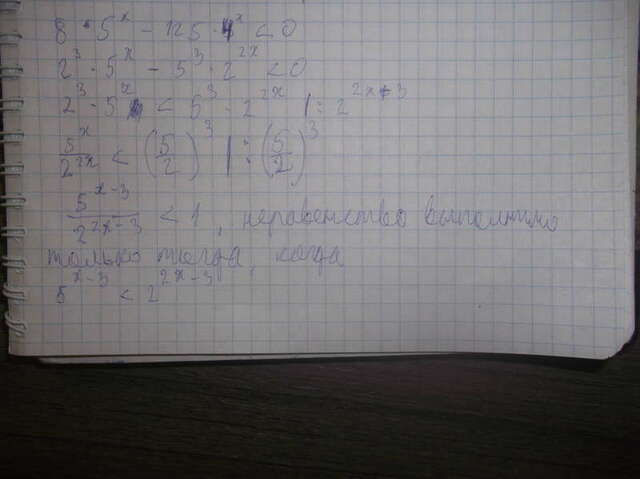 8 · 5^x − 125 · 4^x < 0
2^3 · 5^x − 5^3 · 2^{2x} < 0
2^3 · 5^x < 5^3 · 2^{2x} | : 2^{2x+3}
5^x / 2^{2x} < (5/2)^3 | : (5/2)^3
5^{x−3} / 2^{2x−3} < 1, неравенство выполнимо
только тогда, когда
5^{x−3} < 2^{2x−3}